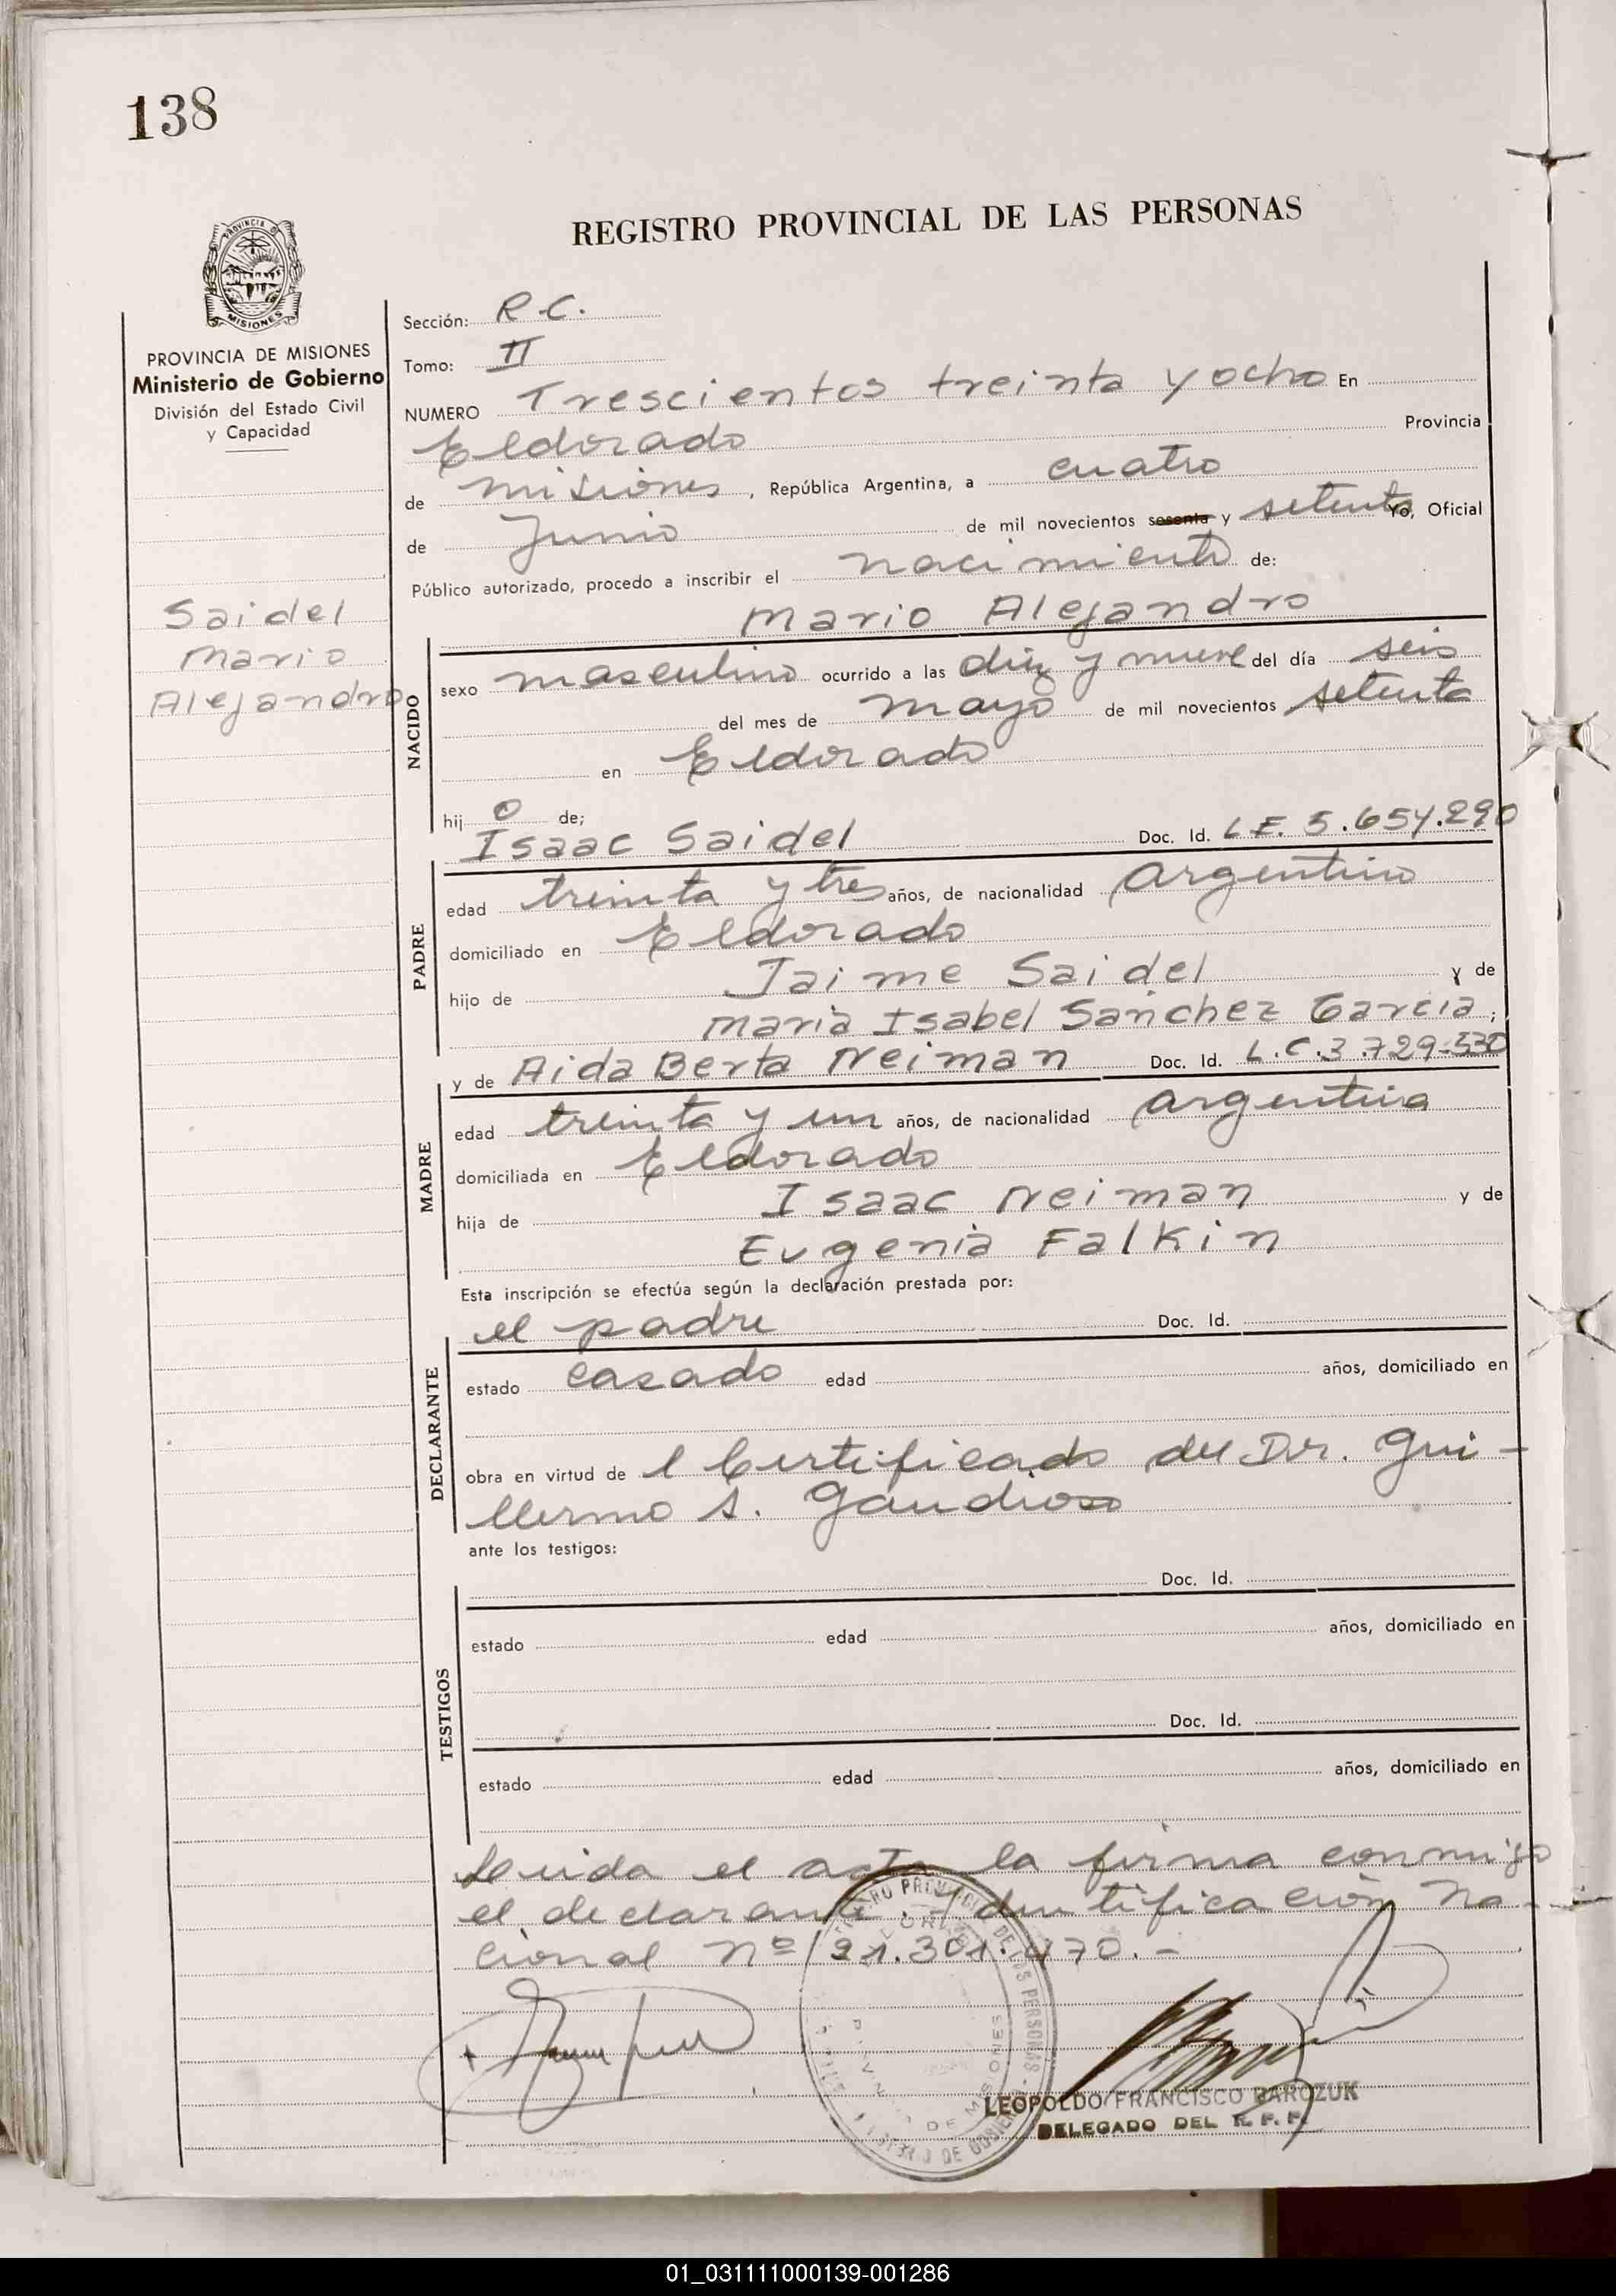 138
REGISTRO PROVINCIAL DE LAS PERSONAS
PROVINCIA DE MISIONES
Ministerio de Gobierno
División del Estado Civil
y Capacidad
Saidel
Mario
Alejandro
Sección: R.C.
Tomo: II
NUMERO Trescientos treinta y ocho En
Eldorado Provincia
de Misiones, República Argentina, a cuatro
de Junio de mil novecientos sesenta y setenta Yo, Oficial
Público autorizado, procedo a inscribir el nacimiento de:
Mario Alejandro
NACIDO
sexo masculino ocurrido a las diez y nueve del día seis
del mes de mayo de mil novecientos setenta
en Eldorado
hij o de;
Isaac Saidel Doc. Id. L.E. 5.654.290
PADRE
edad treinta y tres años, de nacionalidad Argentino
domiciliado en Eldorado
hijo de Jaime Saidel y de
Maria Isabel Sanchez Garcia;
y de Aida Berta Neiman Doc. Id. L.C.3.729.530
MADRE
edad treinta y un años, de nacionalidad argentina
domiciliada en Eldorado
hija de Isaac Neiman y de
Eugenia Falkin
Esta inscripción se efectúa según la declaración prestada por:
el padre Doc. Id.
DECLARANTE
estado casado edad años, domiciliado en
obra en virtud de l Certificado del Dr. Gui-
llermo A. Gaudioso
ante los testigos:
Doc. Id.
TESTIGOS
estado edad años, domiciliado en
Doc. Id.
estado edad años, domiciliado en
Leida el acta la firma conmigo
el declarante. Identificación Na-
cional Nº 21.301.470.-
LEOPOLDO FRANCISCO BAROZUK
DELEGADO DEL R. P. P.
01_031111000139-001286